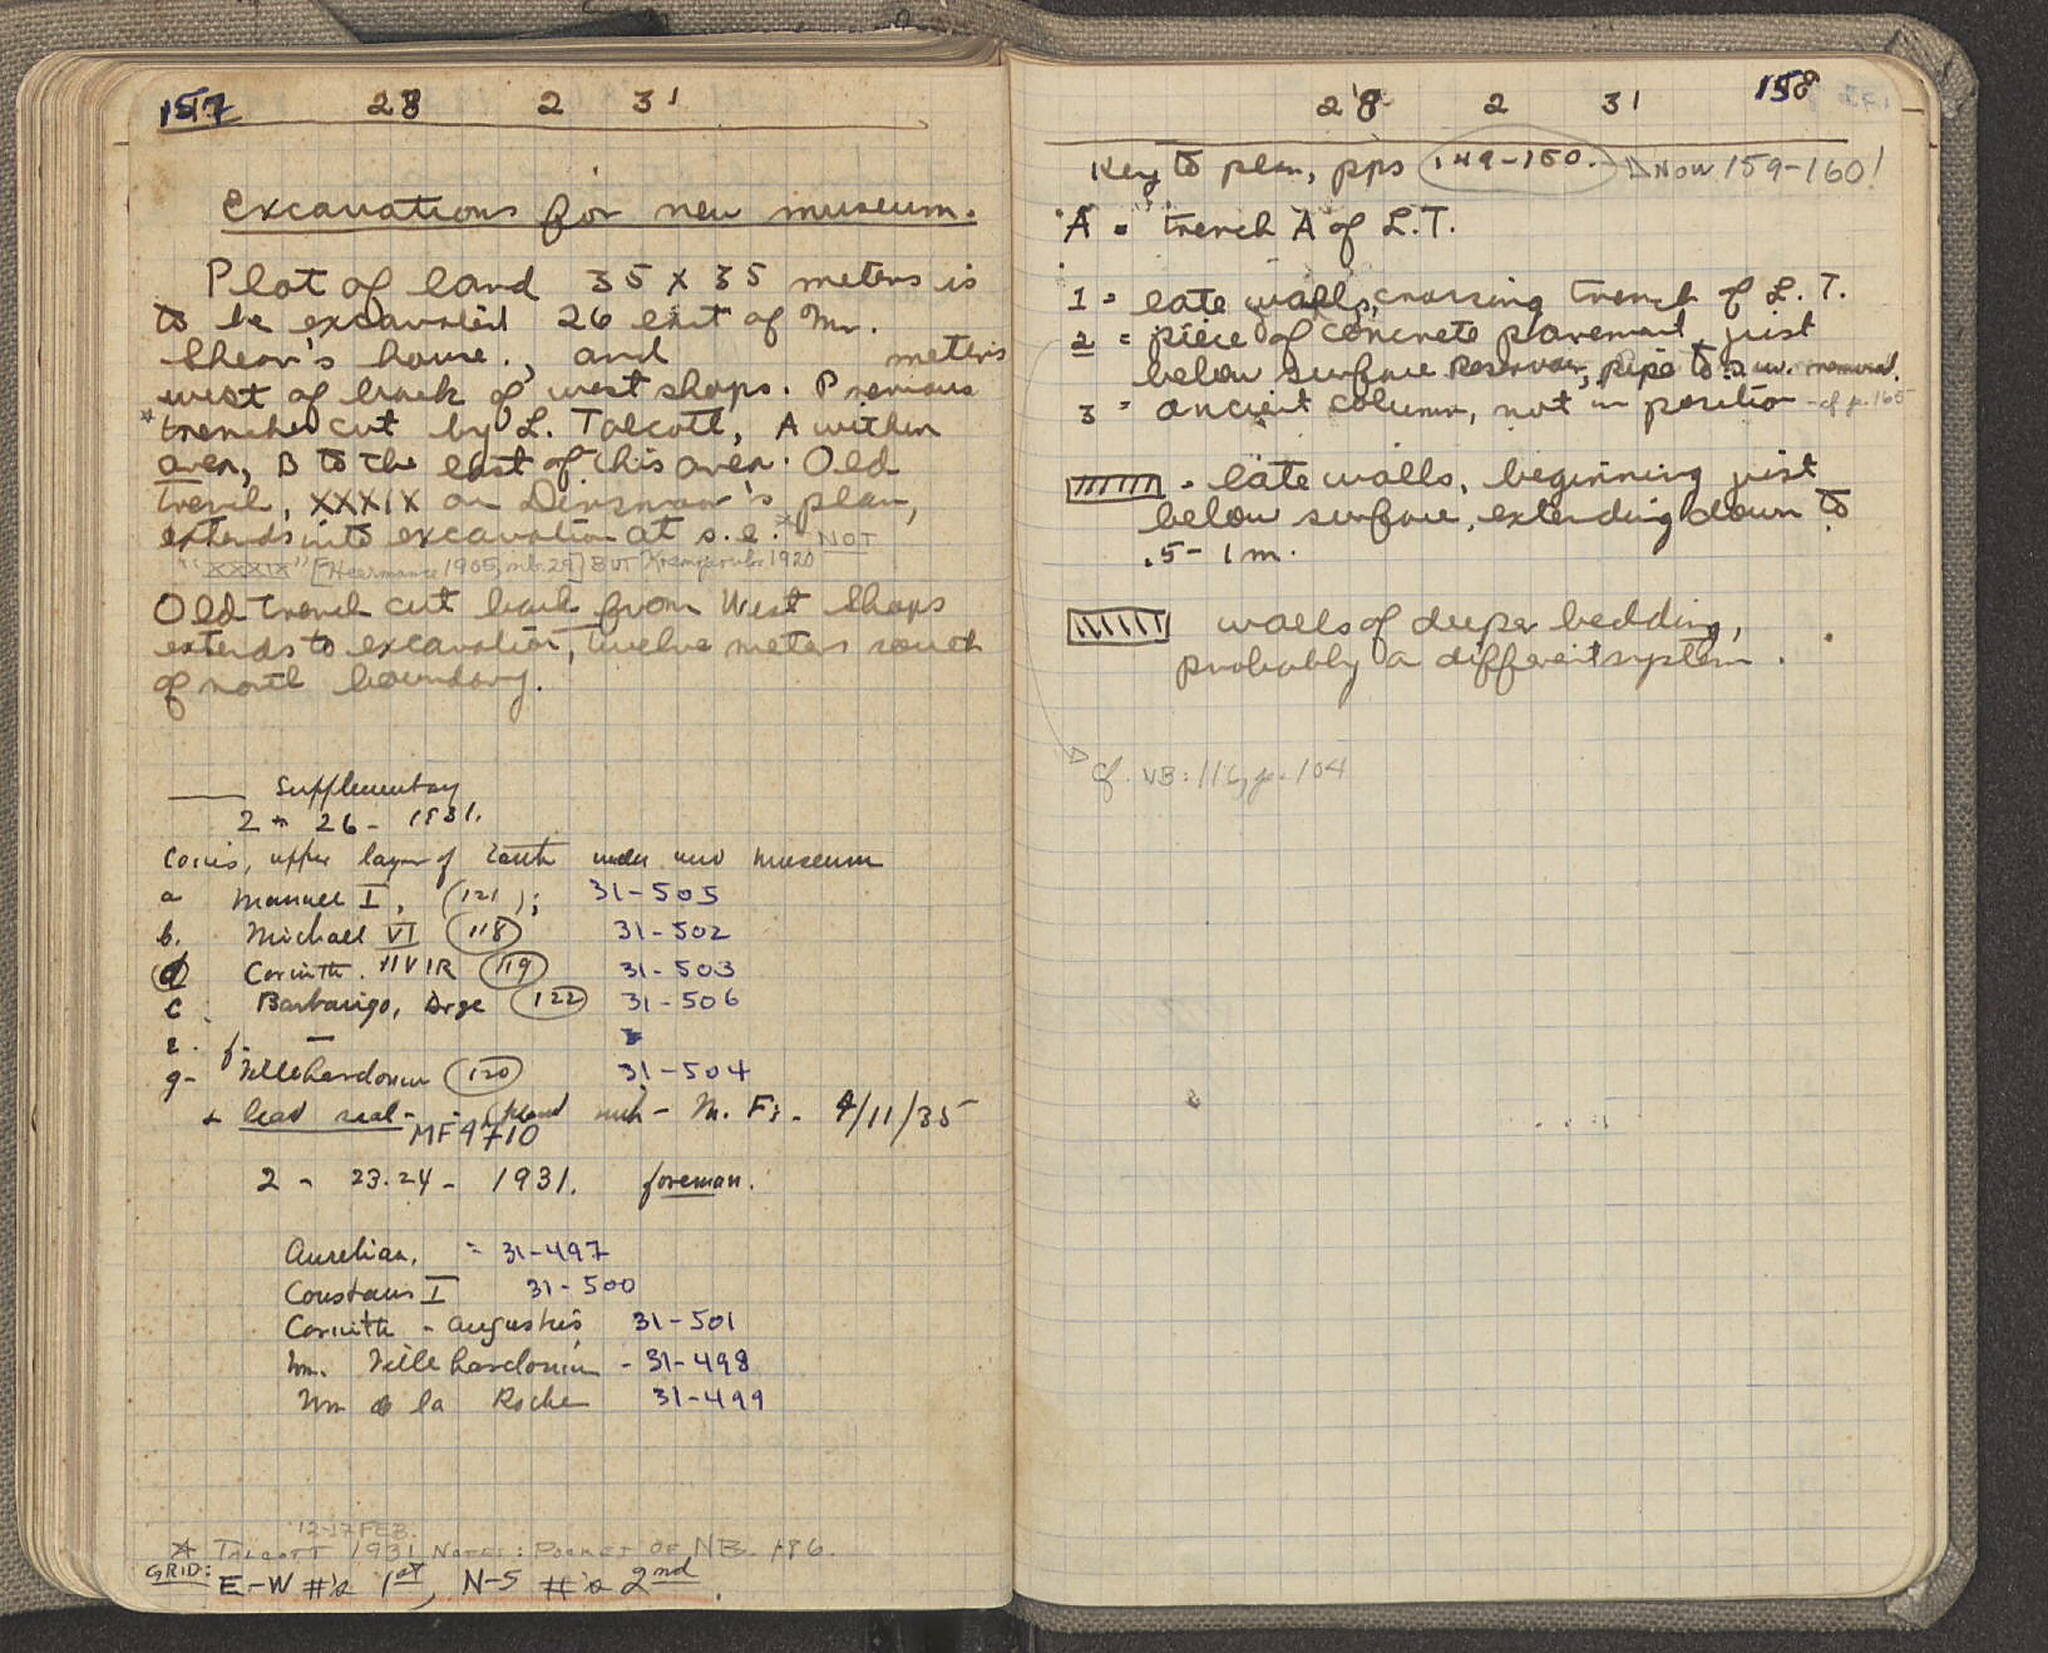 157 28 2 31
Excavations for new museum.
Plot of land 35 x 35 meters is
to be excavated 26 east of Mr.
Shear's house., and meters
west of back of west shops. Previous
*trenches cut by L. Talcott, A within
area, B to the east of this area. Old
trench, XXXIX on Dinsmoor's plan,
extends into excavation at s.e.* NOT
"XXXIX" [Heermance 1905, nb. 29] BUT 1920
Old trench cut back from West Shops
extends to excavation, twelve meters south
of north boundary.
Supplementary
2 - 26 - 1931.
Coins, upper layer of Earth under new museum
a Manuel I, (121); 31-505
b. Michael VI (118) 31-502
d Corinth. IIVIR (119) 31-503
c Barbarigo, Doge (122) 31-506
e. f. —
g- Villehardouin (120) 31-504
+ lead seal - - M. F: - 4/11/35
MF 4710
2 - 23.24 - 1931. foreman.
Aurelian. = 31-497
Constans I 31-500
Corinth - Augustus 31-501
Wm. Villehardouin - 31-498
Wm de la Roche 31-499
12-17 FEB.
* TALCOTT 1931 NOTES: POCKET OF NB. 186.
GRID: E-W #'s 1st, N-S #'s 2nd.
28 2 31 158
Key to plan, pps 149-150. NOW 159-160!
A = trench A of L.T.
1 = late walls, crossing trench of L. T.
2 = piece of concrete pavement, just
below surface Reservoir, pipe to s.w. removed.
3 = ancient column, not in position - cf p. 165
- late walls, beginning just
below surface, extending down to
.5 - 1 m.
walls of deeper bedding,
probably a different system.
cf. NB: 116, p. 104